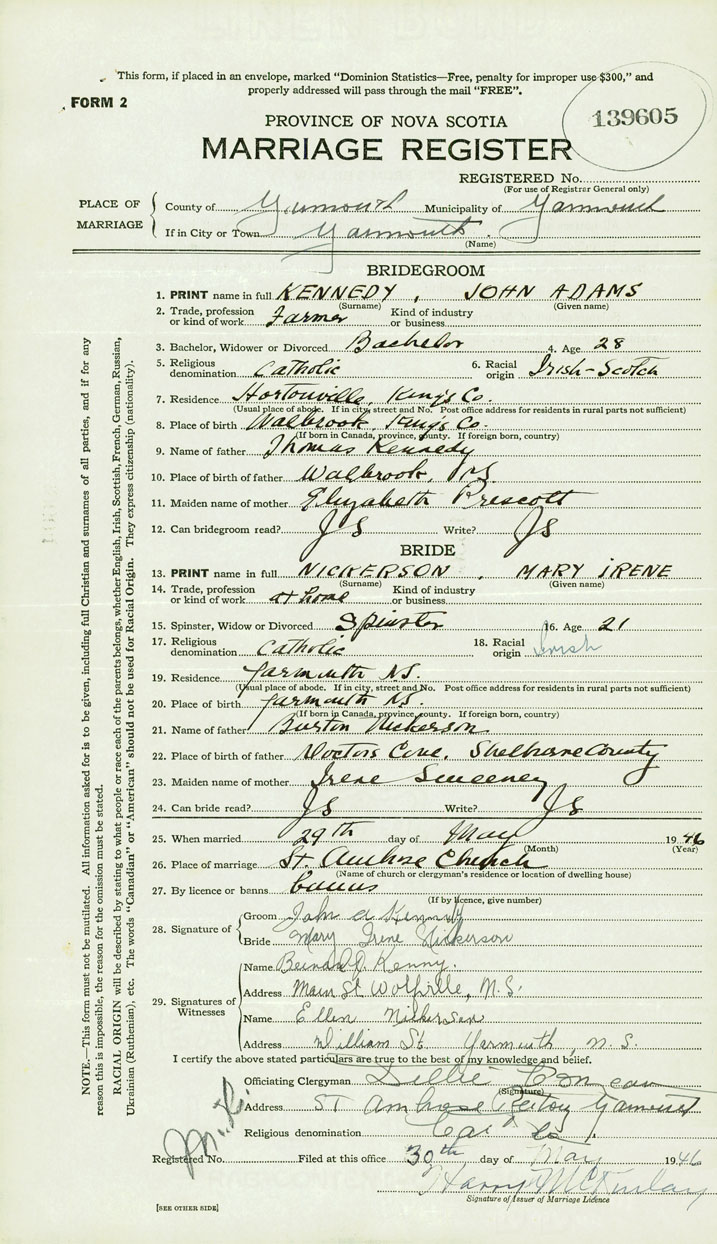 This form, if placed in an envelope, marked "Dominion Statistics—Free, penalty for improper use $300," and
properly addressed will pass through the mail "FREE".
FORM 2
139605
PROVINCE OF NOVA SCOTIA
MARRIAGE REGISTER
REGISTERED No.
(For use of Registrar General only)
PLACE OF MARRIAGE
County of Yarmouth Municipality of Yarmouth
If in City or Town Yarmouth.
(Name)
BRIDEGROOM
1. PRINT name in full KENNEDY, JOHN ADAMS
(Surname) (Given name)
2. Trade, profession or kind of work Farmer Kind of industry or business
3. Bachelor, Widower or Divorced Bachelor 4. Age 28
5. Religious denomination Catholic 6. Racial origin Irish-Scotch
7. Residence Hortonville, Kings Co.
(Usual place of abode. If in city, street and No. Post office address for residents in rural parts not sufficient)
8. Place of birth Walbrook, Kings Co.
(If born in Canada, province, county. If foreign born, country)
9. Name of father Thomas Kennedy
10. Place of birth of father Walbrook, NS
11. Maiden name of mother Elizabeth Prescott
12. Can bridegroom read? Write?
BRIDE
13. PRINT name in full NICKERSON, MARY IRENE
(Surname) (Given name)
14. Trade, profession or kind of work at home Kind of industry or business
15. Spinster, Widow or Divorced Spinster 16. Age 21
17. Religious denomination Catholic 18. Racial origin Irish
19. Residence Yarmouth NS.
(Usual place of abode. If in city, street and No. Post office address for residents in rural parts not sufficient)
20. Place of birth Yarmouth NS.
(If born in Canada, province, county. If foreign born, country)
21. Name of father Burton Nickerson
22. Place of birth of father Doctors Cove, Shelburne County
23. Maiden name of mother Irene Sweeney
24. Can bride read? Write?
25. When married 29th day of May 1946
(Month) (Year)
26. Place of marriage St. Ambrose Church
(Name of church or clergyman's residence or location of dwelling house)
27. By licence or banns banns
(If by licence, give number)
28. Signature of
Groom John A Kennedy
Bride Mary Irene Nickerson
29. Signatures of Witnesses
Name Bernard J. Kenny.
Address Main St Wolfville, N.S.
Name Ellen Nickerson
Address William St. Yarmouth, N.S.
I certify the above stated particulars are true to the best of my knowledge and belief.
Officiating Clergyman Comeau
(Signature)
Address St Ambrose Rectory Yarmouth
Religious denomination
Registered No. Filed at this office 30th day of May 1946
Harry McKinlay
Signature of Issuer of Marriage Licence
[SEE OTHER SIDE]
NOTE.—This form must not be mutilated. All information asked for is to be given, including full Christian and surnames of all parties, and if for any
reason this is impossible, the reason for the omission must be stated.
RACIAL ORIGIN will be described by stating to what people or race each of the parents belongs, whether English, Irish, Scottish, French, German, Russian,
Ukrainian (Ruthenian), etc. The words "Canadian" or "American" should not be used for Racial Origin. They express citizenship (nationality).